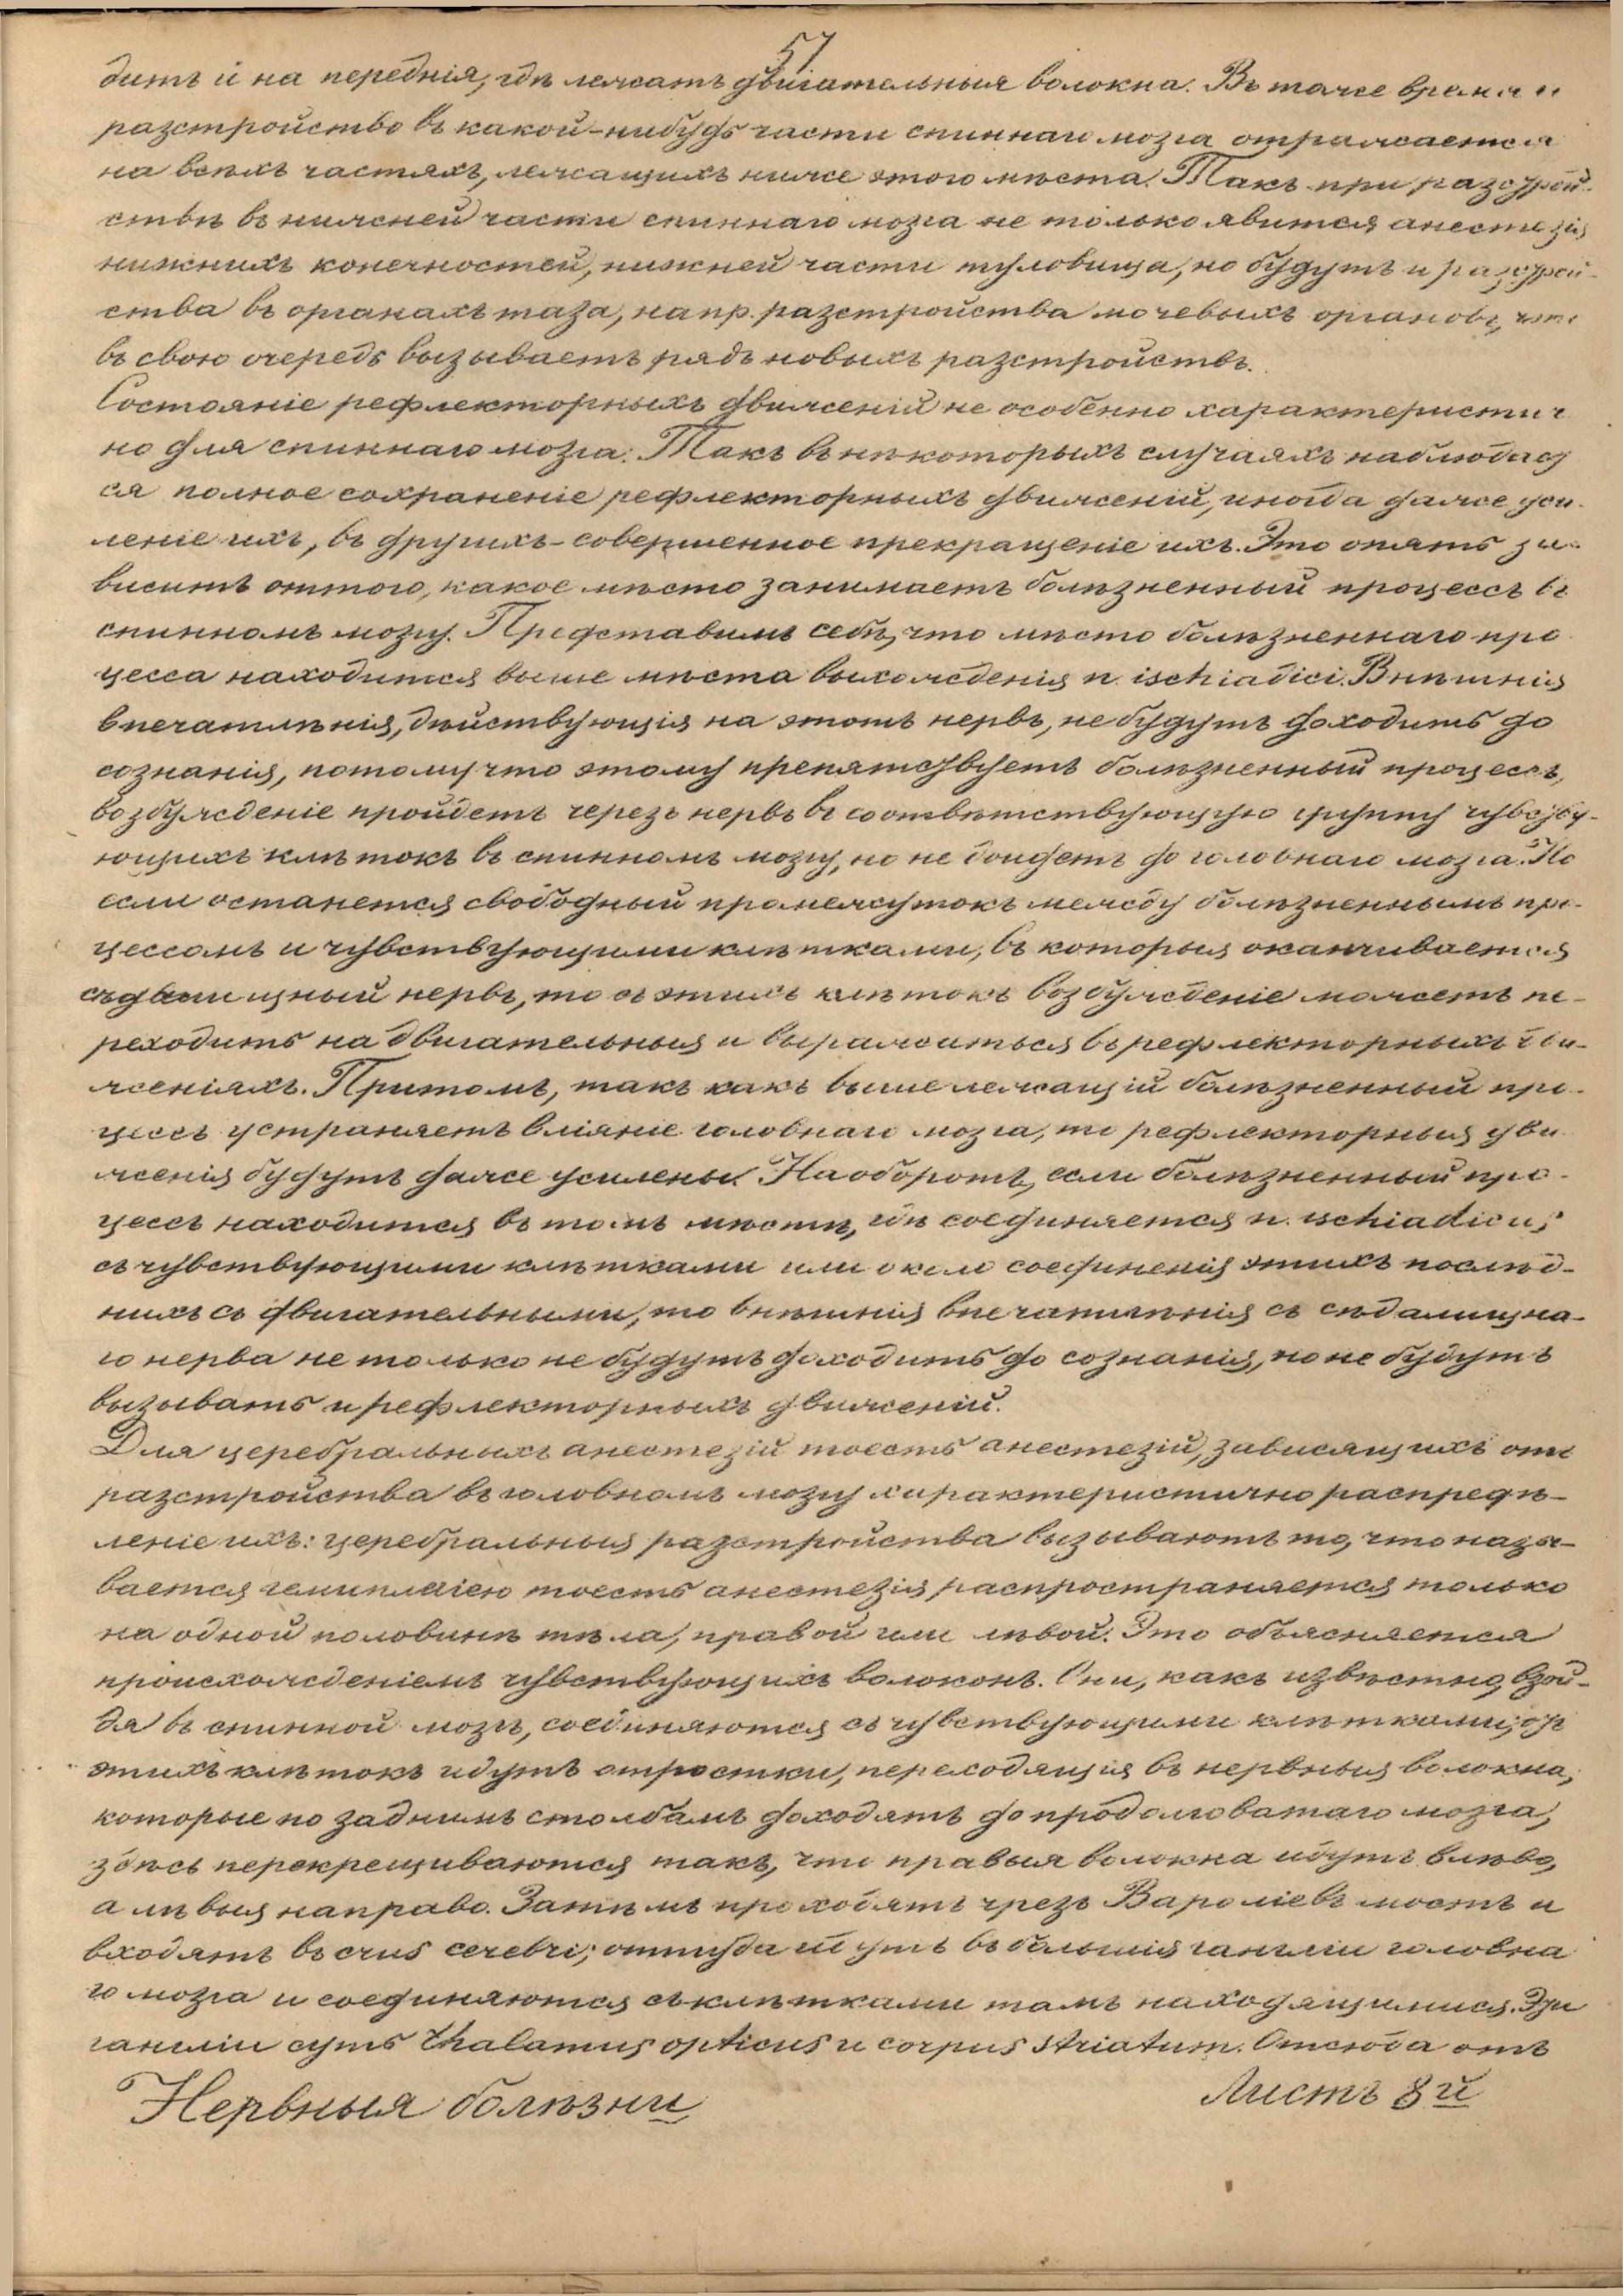 57
дитъ и на переднія, гдѣ лежатъ двигательныя волокна. Въ тоже время и
разстройство въ какой-нибудь части спиннаго мозга отражается
на всѣхъ частяхъ, лежащихъ ниже этого мѣста. Такъ при разстрой-
ствѣ въ нижней части спиннаго мозга не только явится анестезія
нижнихъ конечностей, нижней части туловища, но будутъ и разстрой-
ства въ органахъ таза, напр. разстройства мочевыхъ органовъ, что
въ свою очередь вызываетъ рядъ новыхъ разстройствъ.
Состояніе рефлекторныхъ движеній не особенно характеристич
но для спиннаго мозга. Такъ въ нѣкоторыхъ случаяхъ наблюдает
ся полное сохраненіе рефлекторныхъ движеній, иногда даже уси-
леніе ихъ, въ другихъ-совершенное прекращеніе ихъ. Это опять за-
виситъ оттого, какое мѣсто занимаетъ болѣзненный процессъ въ
спинномъ мозгу. Представимъ себѣ, что мѣсто болѣзненнаго про
цесса находится выше мѣста выхожденія n. ischiadici. Внѣшнія
впечатлѣнія, дѣйствующія на этотъ нервъ, не будутъ доходить до
сознанія, потомучто этому препятствуетъ болѣзненный процессъ,
возбужденіе пройдетъ черезъ нервъ въ соотвѣтствующую группу чувству-
ющихъ клѣтокъ въ спинномъ мозгу, но не дойдетъ до головнаго мозга. Но
если останется свободный промежутокъ между болѣзненнымъ про-
цессомъ и чувствующими клѣтками, въ которыя оканчивается
сѣдалищный нервъ, то съ этихъ клѣтокъ возбужденіе можетъ пе-
реходить на двигательныя и выражаться въ рефлекторныхъ дви-
женіяхъ. Притомъ, такъ какъ выше лежащій болѣзненный про-
цессъ устраняетъ вліяніе головнаго мозга, то рефлекторныя дви-
женія будутъ даже усилены. Наоборотъ, если болѣзненный про-
цессъ находится въ томъ мѣстѣ, гдѣ соединяется n. ischiadicus
съ чувствующими клѣтками или около соединенія этихъ послѣд-
нихъ съ двигательными, то внѣшнія впечатлѣнія съ сѣдалищна-
го нерва не только не будутъ доходить до сознанія, но не будутъ
вызывать и рефлекторныхъ движеній.
Для церебральныхъ анестезій тоесть анестезій, зависящихъ отъ
разстройства въ головномъ мозгу характеристично распредѣ-
леніе ихъ: церебральныя разстройства вызываютъ то, что назы-
вается гемиплегіею тоесть анестезія распространяется только
на одной половинѣ тѣла, правой или лѣвой. Это объясняется
происхожденіемъ чувствующихъ волоконъ. Они, какъ извѣстно, взой-
дя въ спинной мозгъ, соединяются съ чувствующими клѣтками; отъ
этихъ клѣтокъ идутъ отростки, переходящія въ нервныя волокна,
которые по заднимъ столбамъ доходятъ до продолговатаго мозга,
здѣсь перекрещиваются такъ, что правыя волокна идутъ влѣво,
а лѣвыя направо. Затѣмъ проходятъ чрезъ Вароліевъ мостъ и
входятъ въ crus cerebri; оттуда идутъ въ большія гангліи головна
го мозга и соединяются съ клѣтками тамъ находящимися. Эти
гангліи суть thalamus opticus и corpus striatum. Отсюда отъ
Нервныя болѣзни
Листъ 8й